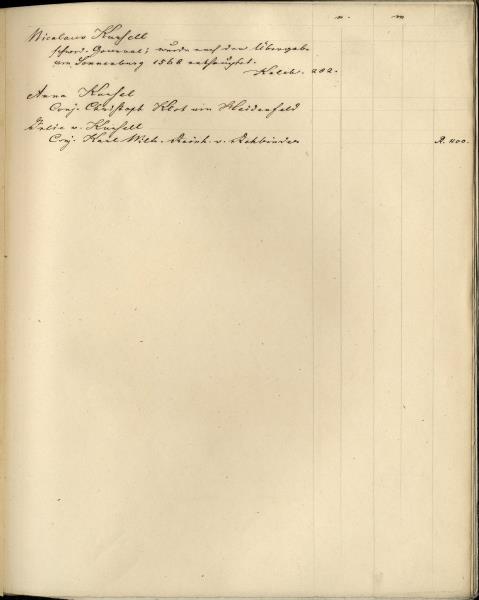 n. m
Nicolaus Kursell
schwed. General; wurde nach der Übergabe
von Sonnenburg 1568 enthauptet.
Kelch. 282.
Anna Kursel
Conj. Christoph Klot von Heidenfeld
Julie v. Kursell
Conj. Karl Wilh. Reinh. v. Rehbinder R. 1100.